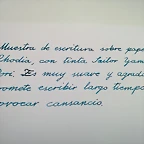 Muestra de escritura sobre pap
Rhodia, con tinta Sailor Yam
Dori. Es muy suave y agrada
romete escribir largo tiempo
rovocar cansancio.